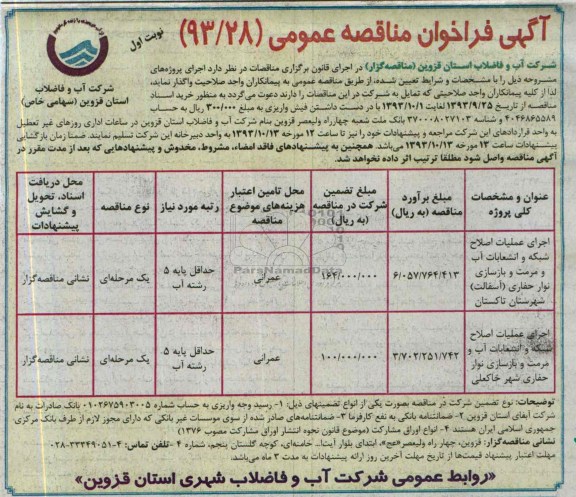 آگهی فراخوان مناقصه عمومی (۹۳/۲۸)
نوبت اول
شرکت آب و فاضلاب
استان قزوین (سهامی خاص)
شرکت آب و فاضلاب استان قزوین (مناقصه‌گزار) در اجرای قانون برگزاری مناقصات در نظر دارد اجرای پروژه‌های
مشروحه ذیل را با مشخصات و شرایط تعیین شده، از طریق مناقصه عمومی به پیمانکاران واجد صلاحیت واگذار نماید،
لذا از کلیه پیمانکاران واجد صلاحیتی که تمایل به شرکت در این مناقصات را دارند دعوت می گردد به منظور خرید اسناد
مناقصه از تاریخ ۱۳۹۳/۹/۲۵ لغایت ۱۳۹۳/۱۰/۱ با در دست داشتن فیش واریزی به مبلغ ۳۰۰/۰۰۰ ریال به حساب
۴۰۴۶۸۶۵۵۸۹ و شناسه ۳۷۰۰۰۸۰۲۷۱۰۳ بانک ملت شعبه چهارراه ولیعصر قزوین بنام شرکت آب و فاضلاب استان قزوین در ساعات اداری روزهای غیر تعطیل
به واحد قراردادهای این شرکت مراجعه و پیشنهادات خود را نیز تا ساعت ۱۲ مورخه ۱۳۹۳/۱۰/۱۳ به واحد دبیرخانه این شرکت تسلیم نمایند. ضمنا زمان بازگشایی
پیشنهادات ساعت ۱۳ مورخه ۱۳۹۳/۱۰/۱۳ می‌باشد. همچنین به پیشنهادهای فاقد امضاء، مشروط، مخدوش و پیشنهادهایی که بعد از مدت مقرر در
آگهی مناقصه واصل شود مطلقا ترتیب اثر داده نخواهد شد.
عنوان و مشخصات کلی پروژه | مبلغ برآورد مناقصه (به ریال) | مبلغ تضمین شرکت در مناقصه (به ریال) | محل تامین اعتبار هزینه‌های موضوع مناقصه | رتبه مورد نیاز | نوع مناقصه | محل دریافت اسناد، تحویل و گشایش پیشنهادات
اجرای عملیات اصلاح شبکه و انشعابات آب و مرمت و بازسازی نوار حفاری (آسفالت) شهرستان تاکستان | ۶/۰۵۷/۷۶۴/۴۱۳ | ۱۶۴/۰۰۰/۰۰۰ | عمرانی | حداقل پایه ۵ رشته آب | یک مرحله‌ای | نشانی مناقصه‌گزار
اجرای عملیات اصلاح شبکه و انشعابات آب و مرمت و بازسازی نوار حفاری شهر خاکعلی | ۳/۷۰۲/۲۵۱/۷۴۲ | ۱۰۰/۰۰۰/۰۰۰ | عمرانی | حداقل پایه ۵ رشته آب | یک مرحله‌ای | نشانی مناقصه‌گزار
توضیحات: نوع تضمین شرکت در مناقصه بصورت یکی از انواع تضمینهای ذیل: ۱- رسید وجه واریزی به حساب شماره ۰۱۰۲۶۷۵۹۰۳۰۰۵ بانک صادرات به نام
شرکت آبفای استان قزوین ۲- ضمانتنامه بانکی به نفع کارفرما ۳- ضمانتنامه‌های صادر شده از سوی موسسات غیر بانکی که دارای مجوز لازم از طرف بانک مرکزی
جمهوری اسلامی ایران هستند ۴- انواع اوراق مشارکت (موضوع قانون نحوه انتشار اوراق مشارکت مصوب ۱۳۷۶)
نشانی مناقصه گزار: قزوین، چهار راه ولیعصر «عج»، ابتدای بلوار آیت‌ا... خامنه‌ای، کوچه گلستان پنجم، شماره ۴ -تلفن تماس: ۴-۳۳۳۴۹۰۵۱-۰۲۸
مهلت اعتبار پیشنهاد قیمت‌ها از تاریخ مهلت آخرین روز ارائه پیشنهادات به مدت ۳ ماه می‌باشد.
«روابط عمومی شرکت آب و فاضلاب شهری استان قزوین»